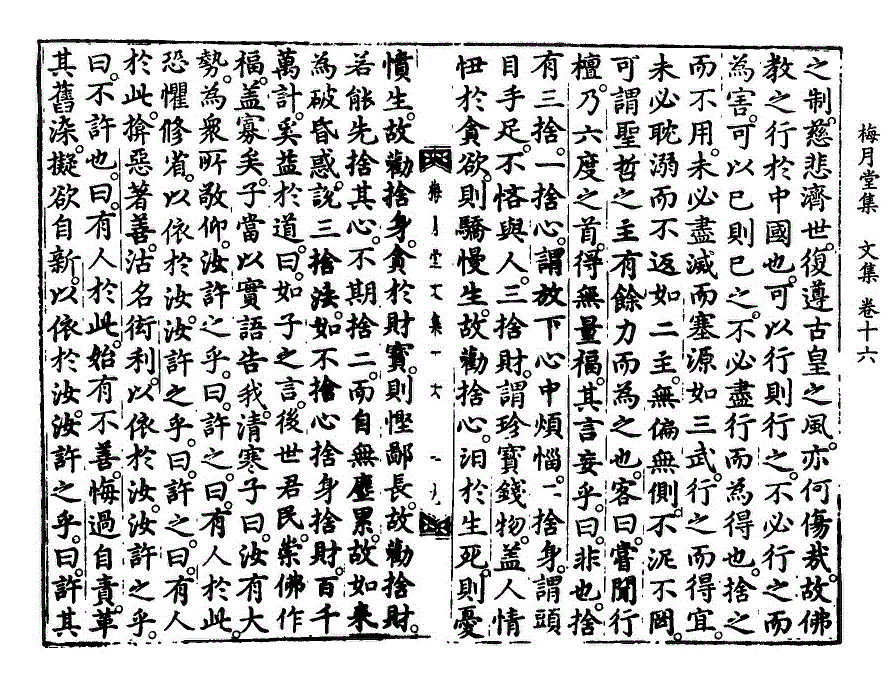 梅月堂集　文集　卷十六
之制慈悲濟世。復遵古皇之風亦何傷哉。故佛
教之行於中國也。可以行則行之。不必行之而
為害。可以已則已之。不必盡行而為得也。捨之
而不用。未必盡滅而塞源如三武。行之而得宜。
未必耽溺而不返如二主。無偏無側。不泥不罔。
可謂聖哲之主有餘力而為之也。客曰。嘗聞行
檀。乃六度之首。得無量福。其言妄乎。曰。非也。捨
有三捨。一捨心。謂放下心中煩惱。一捨身。謂頭
目手足。不悋與人。三捨財。謂珍寶錢物。盖人情
忸於貪欲。則驕慢生。故勸捨心。汨於生死。則憂
梅月堂文集十六
憤生。故勸捨身。貪於財寶。則慳鄙長。故勸捨財。
若能先捨其心。不期捨二。而自無塵累。故如来
為破昏惑。說三捨法。如不捨心捨身捨財。百千
萬計。奚益於道。曰。如子之言。後世君民。崇佛作
福。盖寡矣。子當以實語告我。清寒子曰。汝有大
勢。為衆所敬仰。汝許之乎。曰。許之。曰。有人於此。
恐懼修省。以依於汝。汝許之乎。曰。許之。曰。有人
於此。揜惡著善。沽名衒利。以依於汝。汝許之乎。
曰。不許也。曰。有人於此。始有不善。悔過自責。革
其舊染。擬欲自新。以依於汝。汝許之乎。曰。許其